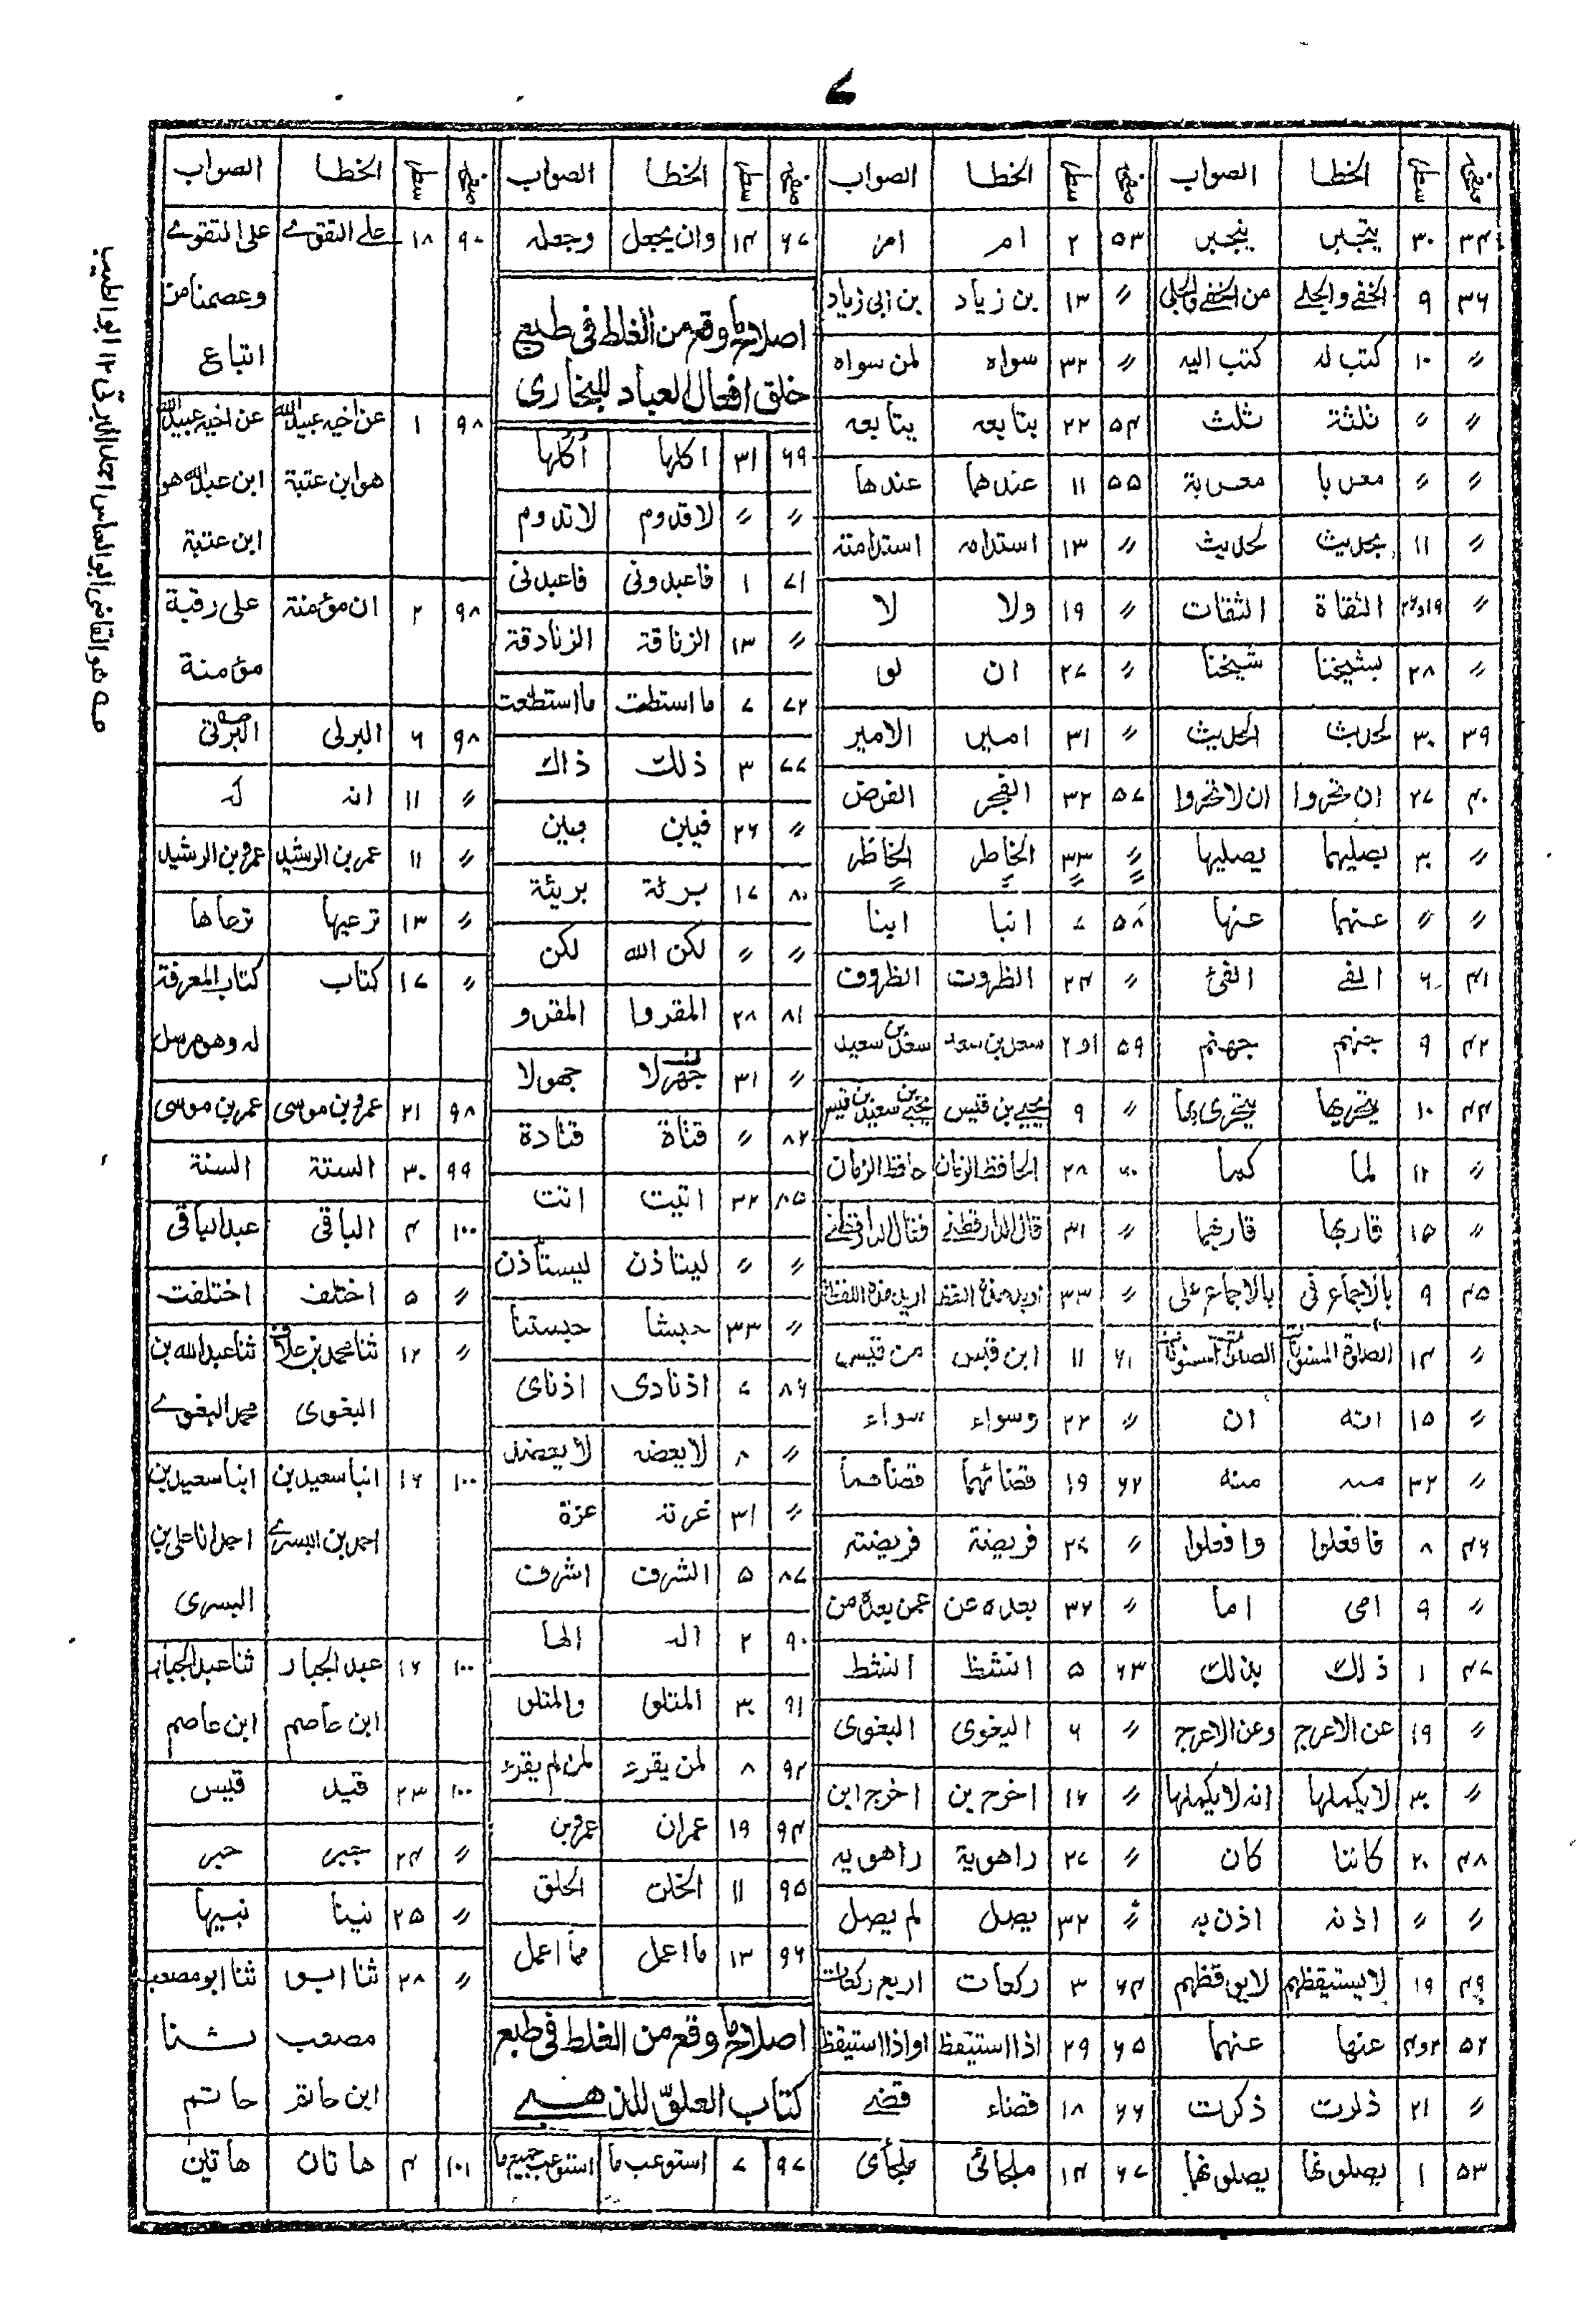 ٧
صفحة سطر الخطا الصواب
٣٤ ٣٠ يتجبن ينجبن
٣٦ ٩ الخفے والجلے من الخفے والجلی
〃 ١٠ كتب له كتب اليه
〃 〃 ثلثة ثلث
〃 〃 معربا معربة
〃 ١١ بحديث لحديث
〃 ١٩و٢٦ الثقاة الثقات
〃 ٢٨ بشيخنا شيخنا
٣٩ ٣٠ لحديث الحديث
٤٠ ٢٧ ان تخروا ان لا تخروا
〃 ٣٠ يصليهما يصليها
〃 〃 عنهما عنها
٤١ ٦ الفے الفئ
٤٢ ٩ جنهم جهنم
٤٤ ١٠ يتحريها يتحرى بها
〃 ١٢ لما كما
〃 ١٥ قاربها قاربهما
٤٥ ٩ بالاجماع فی بالاجماع على
〃 ١٤ الصلوة المسنونة
〃 ١٥ انه ان
〃 ٣٢ منه
٤٦ ٨ فافعلوا وافعلوا
〃 ٩ امی اما
٤٧ ١ ذلك بذلك
〃 ١٩ عن الاعرج وعن الاعرج
〃 ٣٠ لا يكملها انه لا يكملها
٤٨ ٢٠ كائنا كان
〃 〃 اذنه اذن به
٤٩ ١٩ لا يستيقظهم لا يوقظهم
٥٢ ٢و٣ عنها عنهما
〃 ٢١ ذلرت ذكرت
٥٣ ١ يصلونها يصلونهما
صفحة سطر الخطا الصواب
٥٣ ٢ ام امر
〃 ١٣ بن زياد بن ابی زياد
〃 ٣٢ سواه لمن سواه
٥٤ ٢٢ بتابعه يتابعه
٥٥ ١١ عندهما عندها
〃 ١٣ استدامه استدامته
〃 ١٩ ولا لا
〃 ٢٧ ان لو
〃 ٣١ امير الامير
٥٧ ٣٢ الفجر الفرض
〃 ٣٣ الخاطر الخاظر
٥٨ ٧ انبا ابنا
〃 ٢٤ الظروت الظروف
٥٩ ١و٢ سعد بن سعد سعد بن سعيد
〃 ٩ يحيى بن قيس يحيى بن سعيد بن قيس
٦٠ ٢٨ الحافظ الزمان حافظ الزمان
〃 ٣١ قال الدارقطنے فقال الدارقطنے
〃 ٣٣ اريد هذة اللفظ اريد هذة اللفظة
٦١ ١١ ابن قيس من قيس
〃 ٢٢ وسواء سواء
٦٢ ١٩ قضائهما قضاهما
〃 ٢٧ فريضة فريضته
〃 ٣٢ بعده عن عمن بعدة من
٦٣ ٥ النشظ النشط
〃 ٦ اليغوى البغوى
〃 ١٦ اخرج بن اخرج ابن
〃 ٢٧ راهوية راهويه
〃 ٣٢ يصل لم يصل
٦٤ ٣ ركعات اربع ركعات
٦٥ ٢٩ اذا استيقظ او اذا استيقظ
٦٦ ١٨ قضاء قضے
٦٧ ١٤ ملجائى ملجأى
صفحة سطر الخطا الصواب
٦٧ ١٤ وان يجعل وجعله
اصلاح ما وقع من الغلط فی طبع
خلق افعال العباد للبخاری
٦٩ ٣١ اكلها أُكلها
〃 〃 لا قدوم لا تدوم
٧١ ١ فاعبدونی فاعبدنی
〃 ١٣ الزناقة الزنادقة
٧٢ ٧ ما استطت ما استطعت
٧٧ ٣ ذلك ذاك
〃 ٢٦ فيلين
٨٠ ١٧ برئة بريئة
〃 〃 لكن الله لكن
٨١ ٢٨ المقروا المقرو
〃 ٣١ جهولا
٨٢ 〃 قتاة قتادة
٨٥ ٣٢ اتيت انت
〃 〃 ليتاذن ليستأذن
〃 ٣٣ حبشا حبستنا
٨٦ ٧ اذنادى اذناى
〃 ٨ لا يعضه لا يعضد
〃 ٣١ غرته عزة
٨٧ ٥ الشرف اشرف
٩٠ ٢ اله الها
٩١ ٣٠ المتلو والمتلو
٩٢ ٨ لمن يقرء لمن لم يقرء
٩٤ ١٩ عمران عمرو بن
٩٥ ١١ الخلت الخلق
٩٦ ١٣ ما اعمل مما اعمل
اصلاح ما وقع من الغلط فی طبع
كتاب العلوّ للذهبے
٩٧ ٧ استوعب ما استوعب جميع ما
صفحة سطر الخطا الصواب
٩٧ ١٨ علے التقوے على التقوے
وعصمنا من
اتباع
٩٨ ١ عن اخيه عبيد الله عن اخيه عبيد الله
هو ابن عتبة ابن عبد الله هو
ابن عتبة
٩٨ ٢ ان مؤمنة على رقبة
مؤمنة
٩٨ ٦ البرلى البرتى
〃 ١١ انه له
〃 ١١ عمر بن الرشيد عمرو بن الرشيد
〃 ١٣ ترعيها ترعاها
〃 ١٧ كتاب كتاب المعرفة
له وهو مرسل
٩٨ ٢١ عمرو بن موسى عمر بن موسى
٩٩ ٣٠ الستة السنة
١٠٠ ٤ الباقی عبد الباقی
〃 ٥ اختلف اختلفت
〃 ١٢ ثنا محمد بن علاف ثنا عبد الله بن
البغوى محمد البغوے
١٠٠ ١٦ انبا سعيد بن ابنا سعيد بن
احمد بن البسرے احمد انا على بن
البسرى
١٠٠ ١٦ عبد الجبار ثنا عبد الجبار
ابن عاصم ابن عاصم
١٠٠ ٢٣ قيد قيس
〃 ٢٤ جبر حبر
〃 ٢٥ نبينا نبيها
〃 ٢٨ ثنا ابو ثنا ابو مصعب
مصعب ثنا
ابن حاتم حاتم
١٠١ ٤ هاتان هاتين
صه هو القاضى ابو العباس احمد البرتى ١٢ ابو الطيب